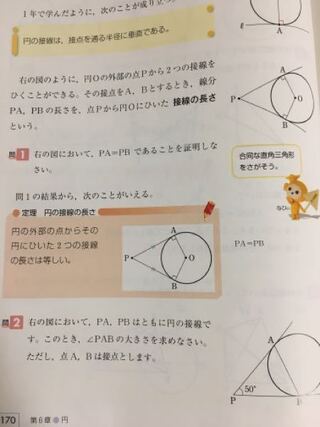 1年で学んだように、次のことが成り立つ。
円の接線は、接点を通る半径に垂直である。
ℓ
A
右の図のように、円Oの外部の点Pから2つの接線を
ひくことができる。その接点をA、Bとするとき、線分
PA、PBの長さを、点Pから円Oにひいた 接線の長さ
という。
A
P
O
B
問1 右の図において、PA=PBであることを証明しな
さい。
合同な直角三角形
をさがそう。
問1の結果から、次のことがいえる。
定理 円の接線の長さ
円の外部の点からその
円にひいた2つの接線
の長さは等しい。
A
P
O
B
PA=PB
問2 右の図において、PA、PBはともに円の接線で
す。このとき、∠PABの大きさを求めなさい。
ただし、点A、Bは接点とします。
A
50°
P
B
170 第6章 円